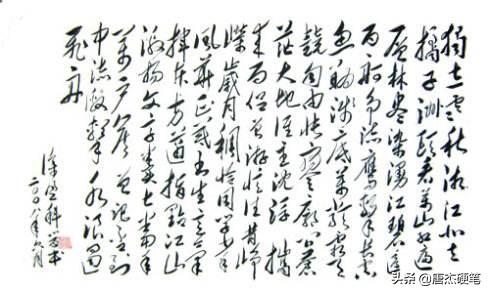 独立寒秋湘江北去
橘子洲头看万山红遍
层林尽染漫江碧透
百舸争流鹰击长空
鱼翔浅底万类霜天
竞自由怅寥廓问苍
茫大地谁主沉浮携
来百侣曾游忆往昔峥
嵘岁月稠恰同学少年
风华正茂书生意气
挥斥方遒指点江山
激扬文字粪土当年
万户侯曾记否到
中流击水浪遏
飞舟
二〇〇八年六月
头条 @唐杰硬笔